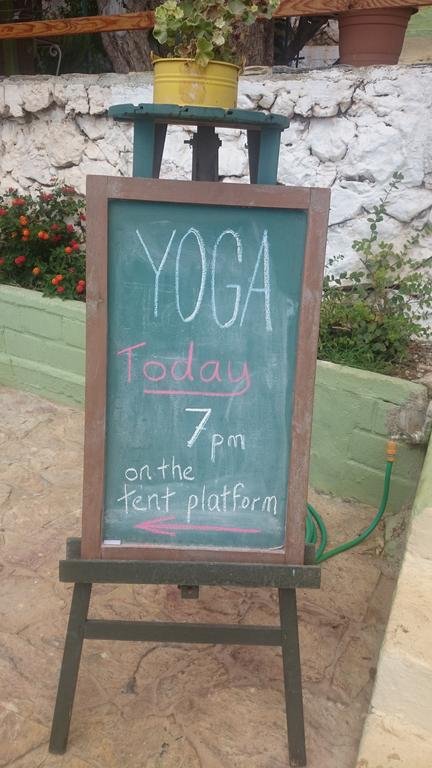 YOGA
Today
7 pm
on the
tent platform